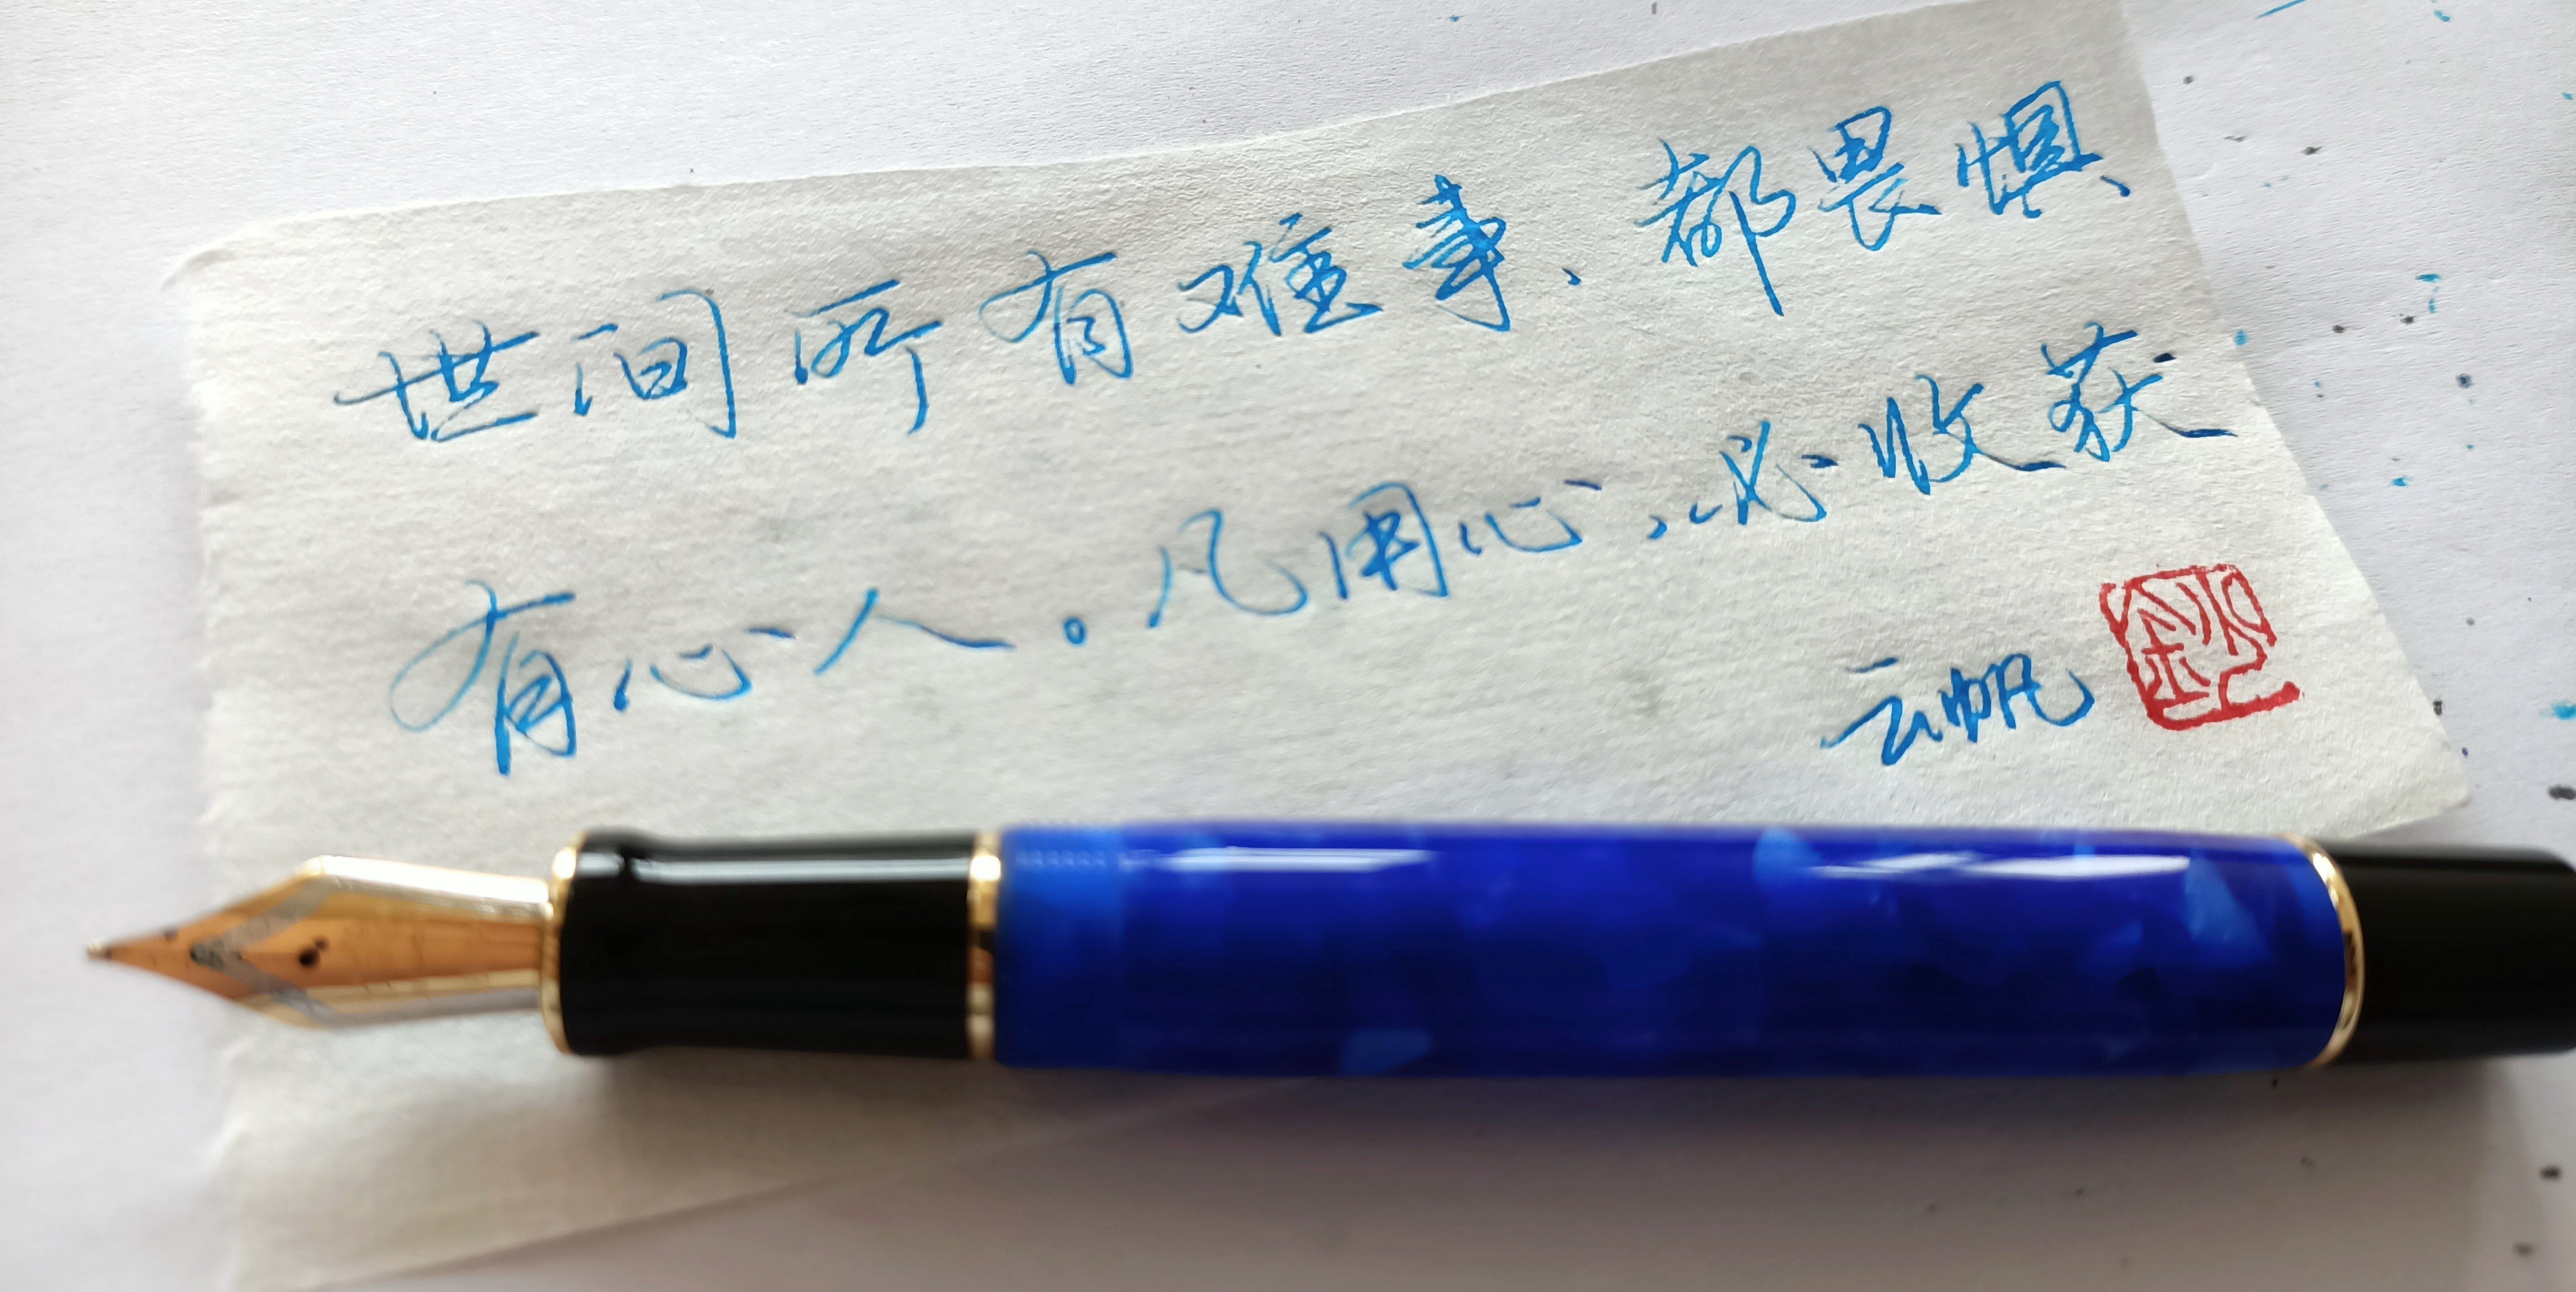 世间所有难事、都畏惧、
有心人。凡用心，必收获
云帆